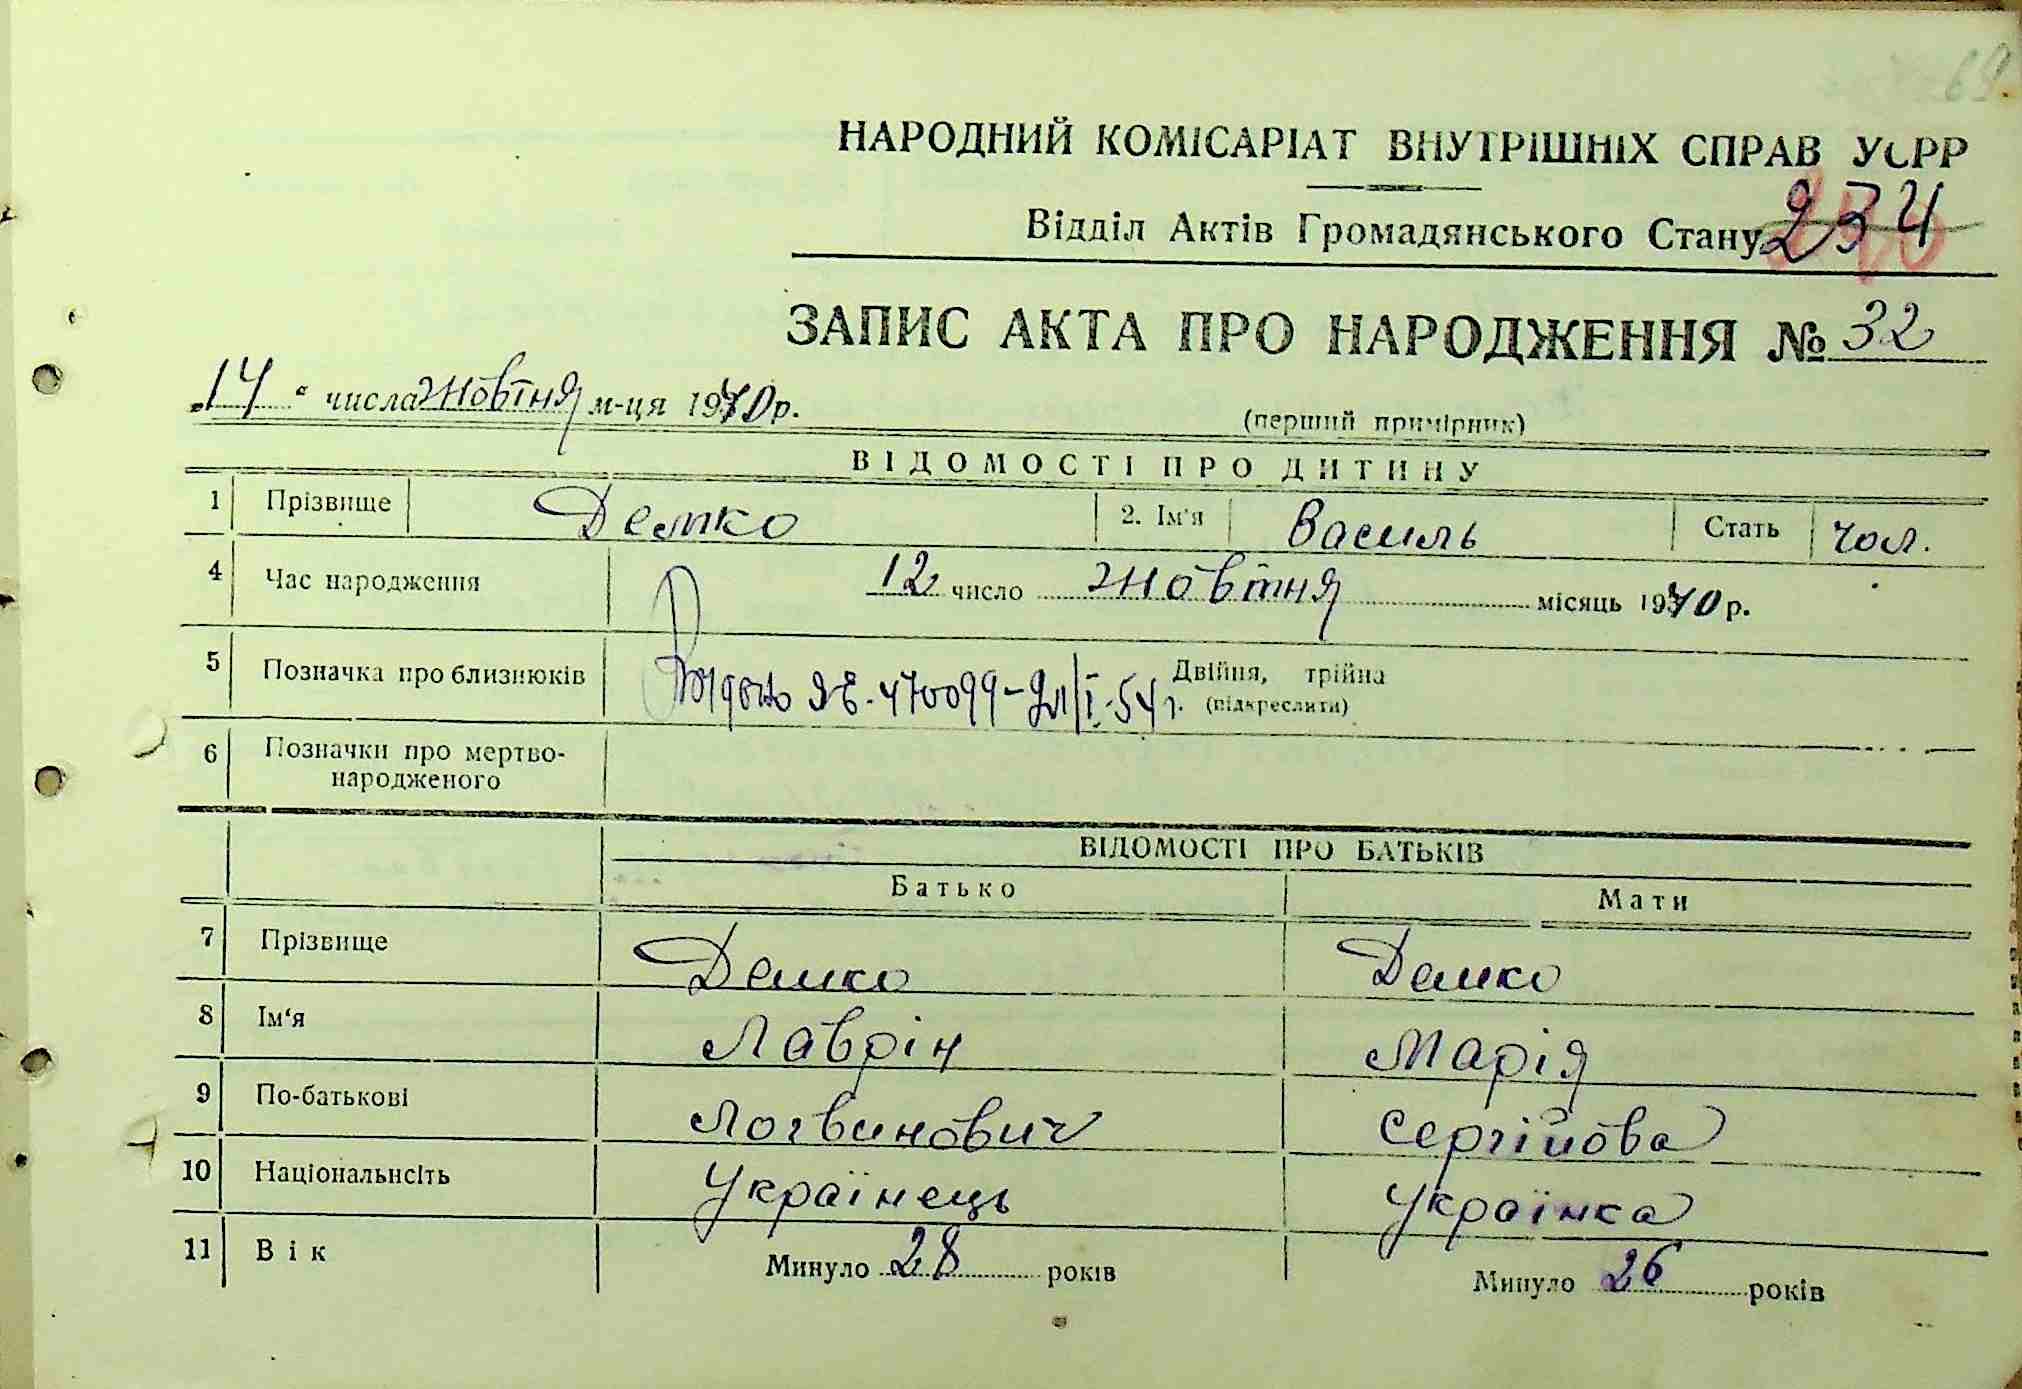 69
НАРОДНИЙ КОМІСАРІАТ ВНУТРІШНІХ СПРАВ УСРР
Відділ Актів Громадянського Стану 234
ЗАПИС АКТА ПРО НАРОДЖЕННЯ № 32
„14“ числа жовтня м-ця 1940 р.
(перший примірник)
ВІДОМОСТІ ПРО ДИТИНУ
1 Прізвище Демко 2. Ім'я Василь Стать чол.
4 Час народження 12 число жовтня місяць 1940 р.
5 Позначка про близнюків ЯЕ-470099-9/I-54 г. Двійня, трійна
(підкреслити)
6 Позначки про мертво-
народженого
ВІДОМОСТІ ПРО БАТЬКІВ
Батько Мати
7 Прізвище Демко Демко
8 Ім'я Лаврін Марія
9 По-батькові Логвинович Сергійова
10 Національнсіть Українець Українка
11 Вік Минуло 28 років Минуло 26 років